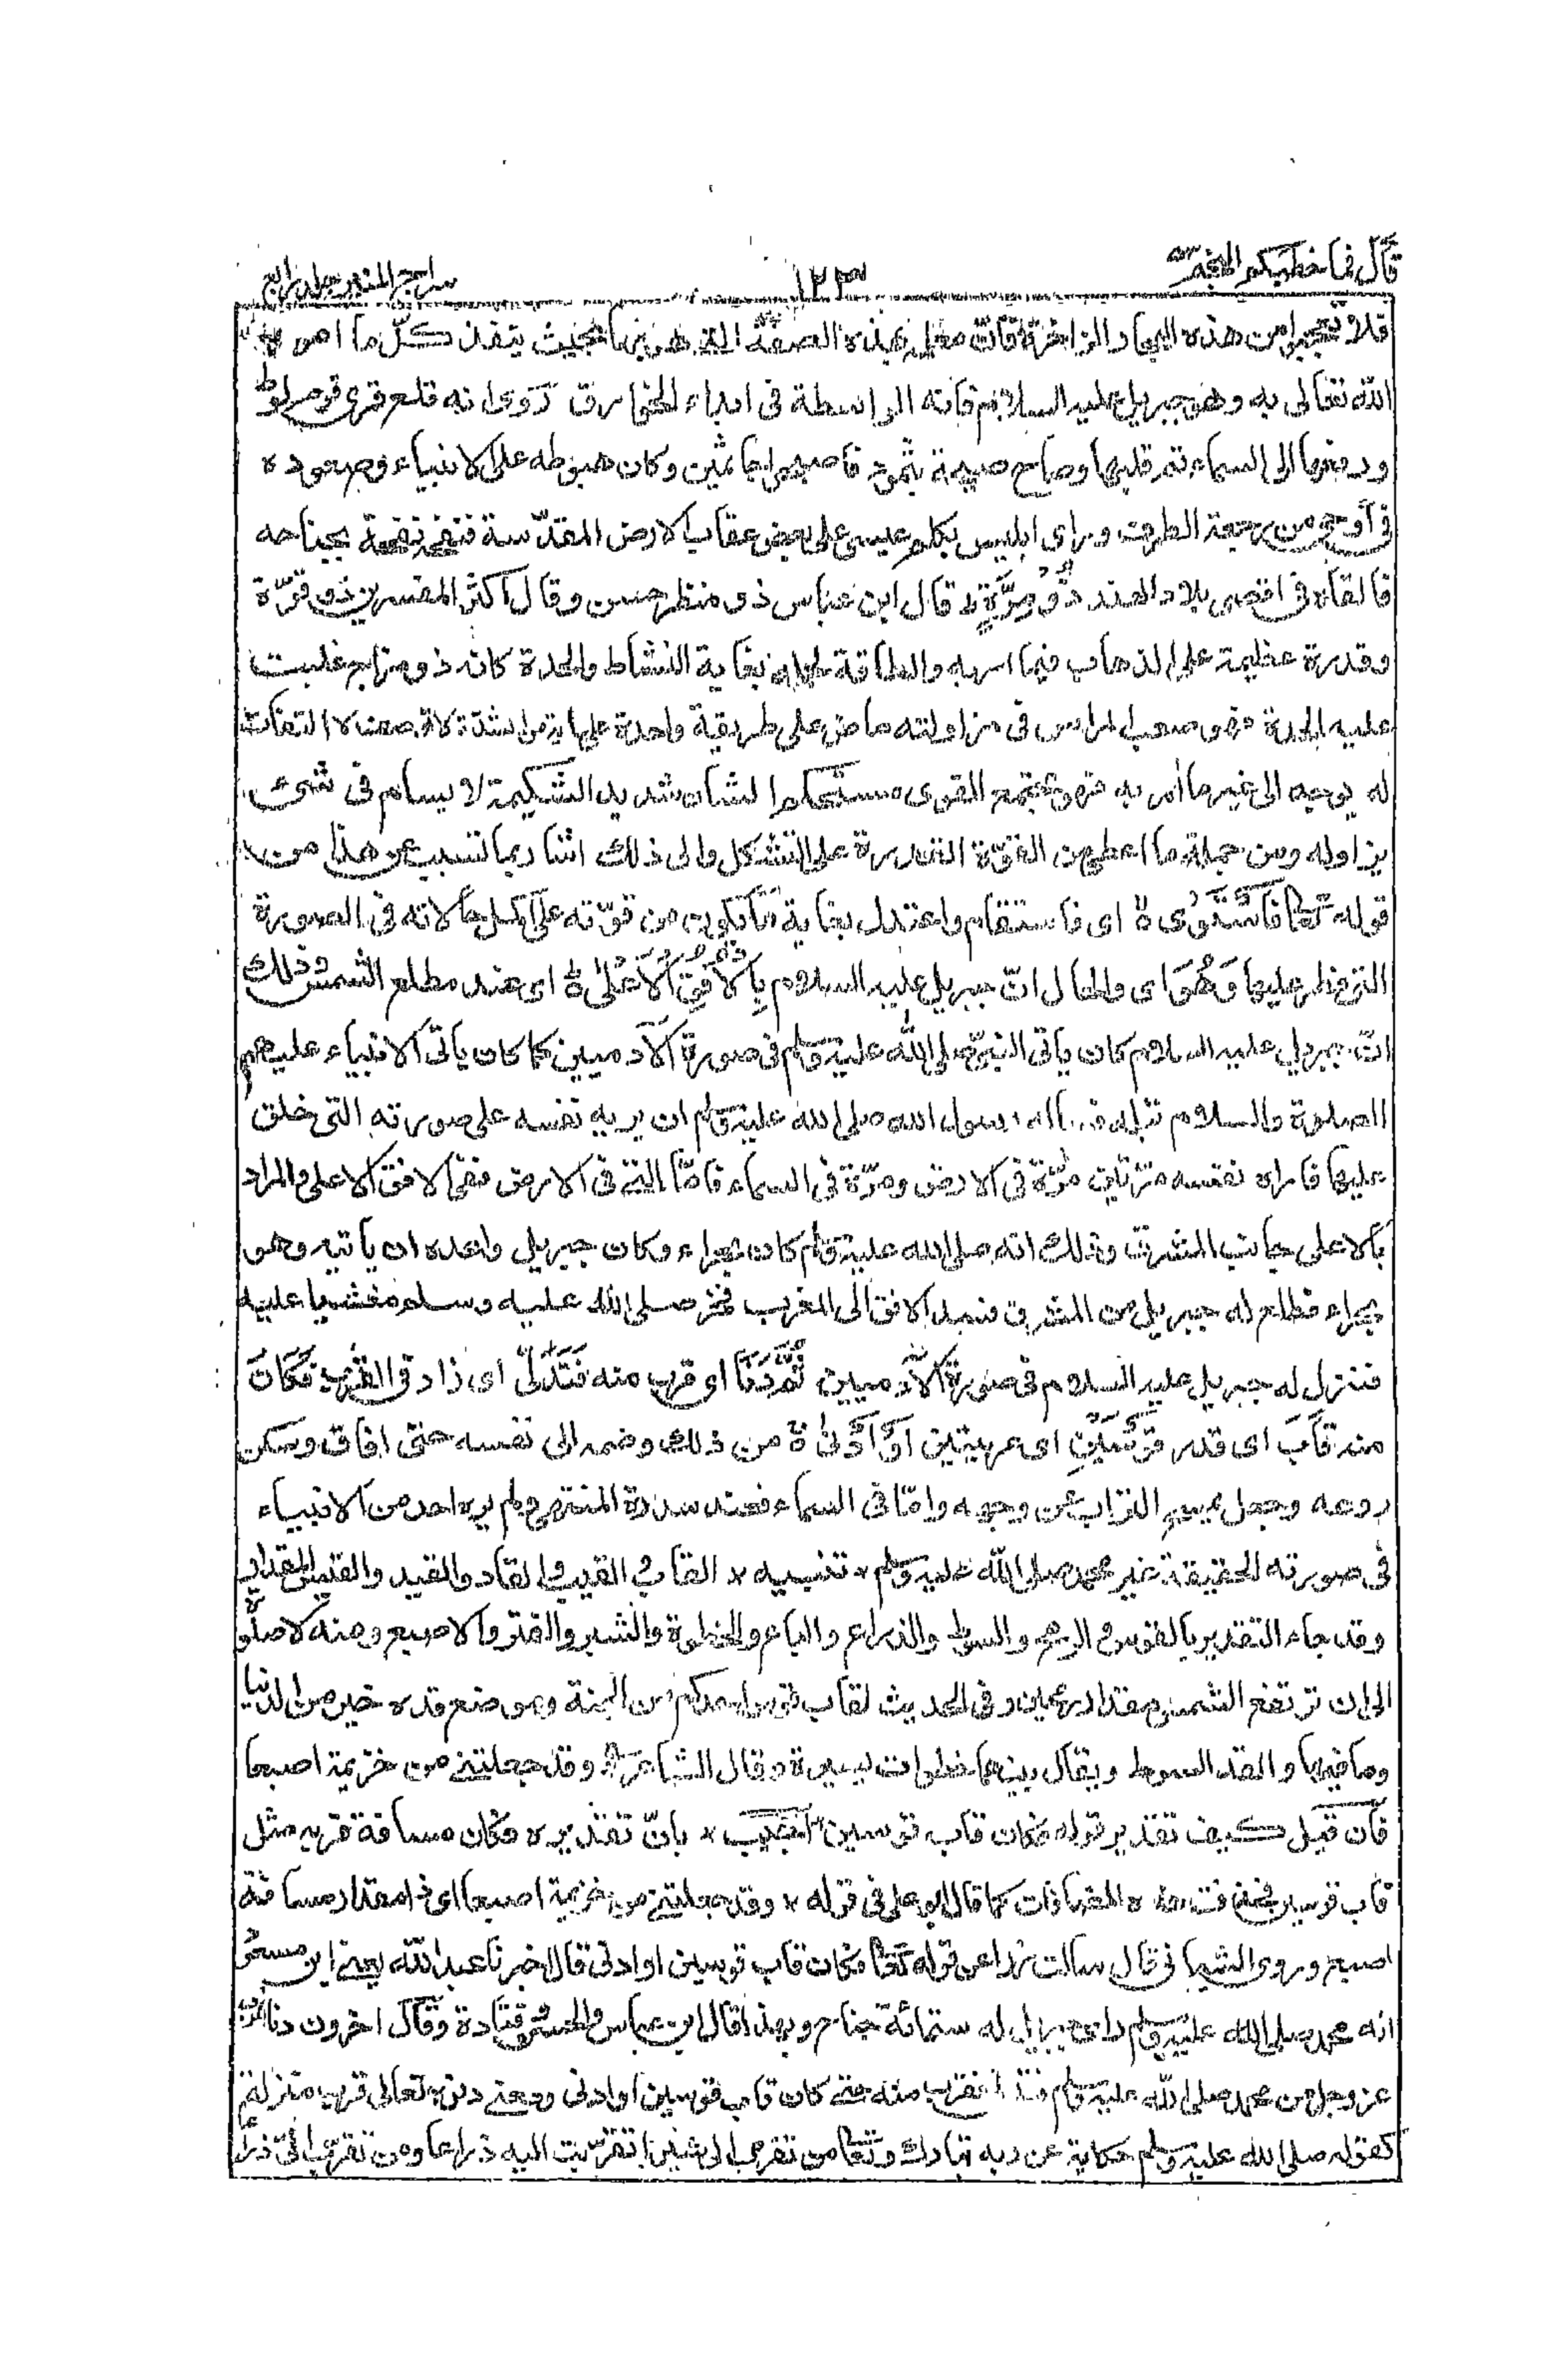 قال فما خطبكم النجم
١٢٣
سراج المنير جلد رابع
فلا تعجبوا من هذه البحار الزاخرة فان معلمه بهذه الصفة التى هو بها بحيث ينفذ كلّ ما امره
الله تعالى به وهو جبريل عليه السلام فانه الواسطة فى ابداء الخوارق روى انه قلع قرى قوم لوط
ورفعها الى السماء ثم قلبها وصاح صيحة بثمود فاصبحوا جاثمين وكان هبوطه على الانبياء وصعوده
فى أوحى من رجعة الطرف وراى ابليس يكلم عيسى على بعض عقاب الارض المقدّسة فنفخه نفخة بجناحه
فالقاه فى اقصى بلاد الهند ذُوْ مِرَّةٍ قال ابن عباس ذو منظر حسن وقال اكثر المفسرين ذو قوّة
وقدرة عظيمة على الذهاب فيما امر به والطاقة لحمله بغاية النشاط والحدة كانه ذو مزاج غلبت
عليه الحدة فهو صعب المراس فى مزاولته ماض على طريقة واحدة على غاية من الشدّة لا توصف لا التفات
له بوجه الى غير ما امر به فهو مجتمع القوى مستحكم الشان شديد الشكيمة لا يسام فى شىء
يزاوله ومن جملة ما اعطى من القوّة القدرة على التشكل والى ذلك اشار بما تسبب عن هذا من
قوله تعا فَاسْتَوٰى ۙ اى فاستقام واعتدل بغاية ما يكون من قوّته على اكمل حالاته فى الصورة
التى فطر عليها وَهُوَ اى والحال انّ جبريل عليه السلام بِالْاُفُقِ الْاَعْلٰى ۙ اى عند مطلع الشمس وذلك
انّ جبريل عليه السلام كان ياتى النبى صلى الله عليه وسلم فى صورة الآدميين كما كان ياتى الانبياء عليهم
الصلوة والسلام قبله فساله رسول الله صلى الله عليه وسلم ان يريه نفسه على صورته التى خلق
عليها فاراه نفسه مرّتين مرّة فى الارض ومرّة فى السماء فامّا التى فى الارض ففى الافق الاعلى والمراد
بالاعلى جانب المشرق وذلك انه صلى الله عليه وسلم كان بحراء وكان جبريل واعده ان ياتيه وهو
بحراء فطلع له جبريل من المشرق فسد الافق الى المغرب فخر صلى الله عليه وسلم مغشيا عليه
فنزل له جبريل عليه السلام فى صورة الآدميين ثُمَّ دَنَا اى قرب منه فَتَدَلّٰى اى زاد فى القرب فَكَانَ
منه قَابَ اى قدر قَوْسَيْنِ اى عربيتين اَوْ اَدْنٰى ۚ من ذلك وضمه الى نفسه حتى افاق وسكن
روعه وجعل يمسح التراب عن وجهه وامّا فى السماء فعند سدرة المنتهى ولم يره احد من الانبياء
فى صورته الحقيقة غير محمد صلى الله عليه وسلم * تنبيه * القاب والقيب والقاد والقيد والقيس المقدار
وقد جاء التقدير بالقوس والرمح والسوط والذراع والباع والخطوة والشبر والفتر والاصبع ومنه لا صلوة
الى ان ترتفع الشمس مقدار رمحين وفى الحديث لقاب قوس احدكم من الجنة وموضع قده خير من الدنيا
وما فيها والقد السوط ويقال بينهما خطوات يسيرة وقال الشاعر وقد جعلتنى من خزيمة اصبعا
فان قيل كيف تقدير قوله فكان قاب قوسين اجيب * بانّ تقديره فكان مسافة قربه مثل
قاب قوسين فحذفت هذه المضافات كما قال ابو على فى قوله * وقد جعلتنى من خزيمة اصبعا اى ذا مقدار مسافة
اصبع وروى الشيبانى قال سالت زرا عن قوله تعا فكان قاب قوسين او ادنى قال اخبرنا عبد الله يعنى ابن مسعود
انه محمد صلى الله عليه وسلم راى جبريل له ستمائة جناح وبهذا قال ابن عباس والحسن وقتادة وقال اخرون دنا الرب
عز وجل من محمد صلى الله عليه وسلم فتدلى فقرب منه حتى كان قاب قوسين او ادنى ومعنى دنوه تعالى قرب منزلة
كقوله صلى الله عليه وسلم حكاية عن ربه تبارك وتعا من تقرب الى شبرا تقرّبت اليه ذراعا ومن تقرّب الىّ ذراعا